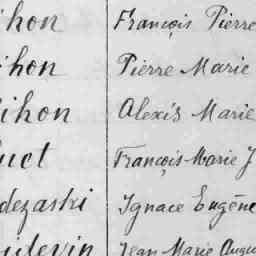 ihon François Pierre
ihon Pierre Marie
ihon Alexis Marie
uct François Marie J
dezaski Ignace Eugène
uidevin Jean Marie Augu